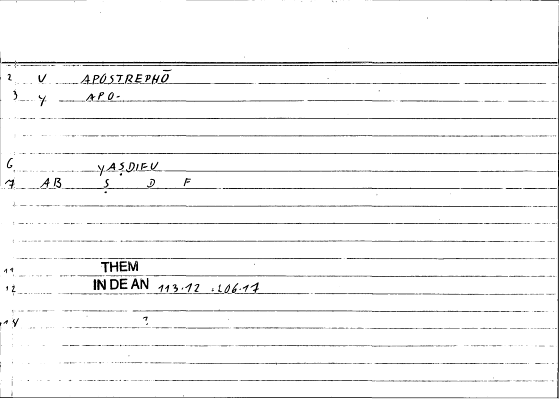 2 V APOSTREPHŌ
3 y APO-
6 yAṢDIFU
7 AB Ṣ D F
11 THEM
12 IN DE AN 113.12 :206.17
14 ?